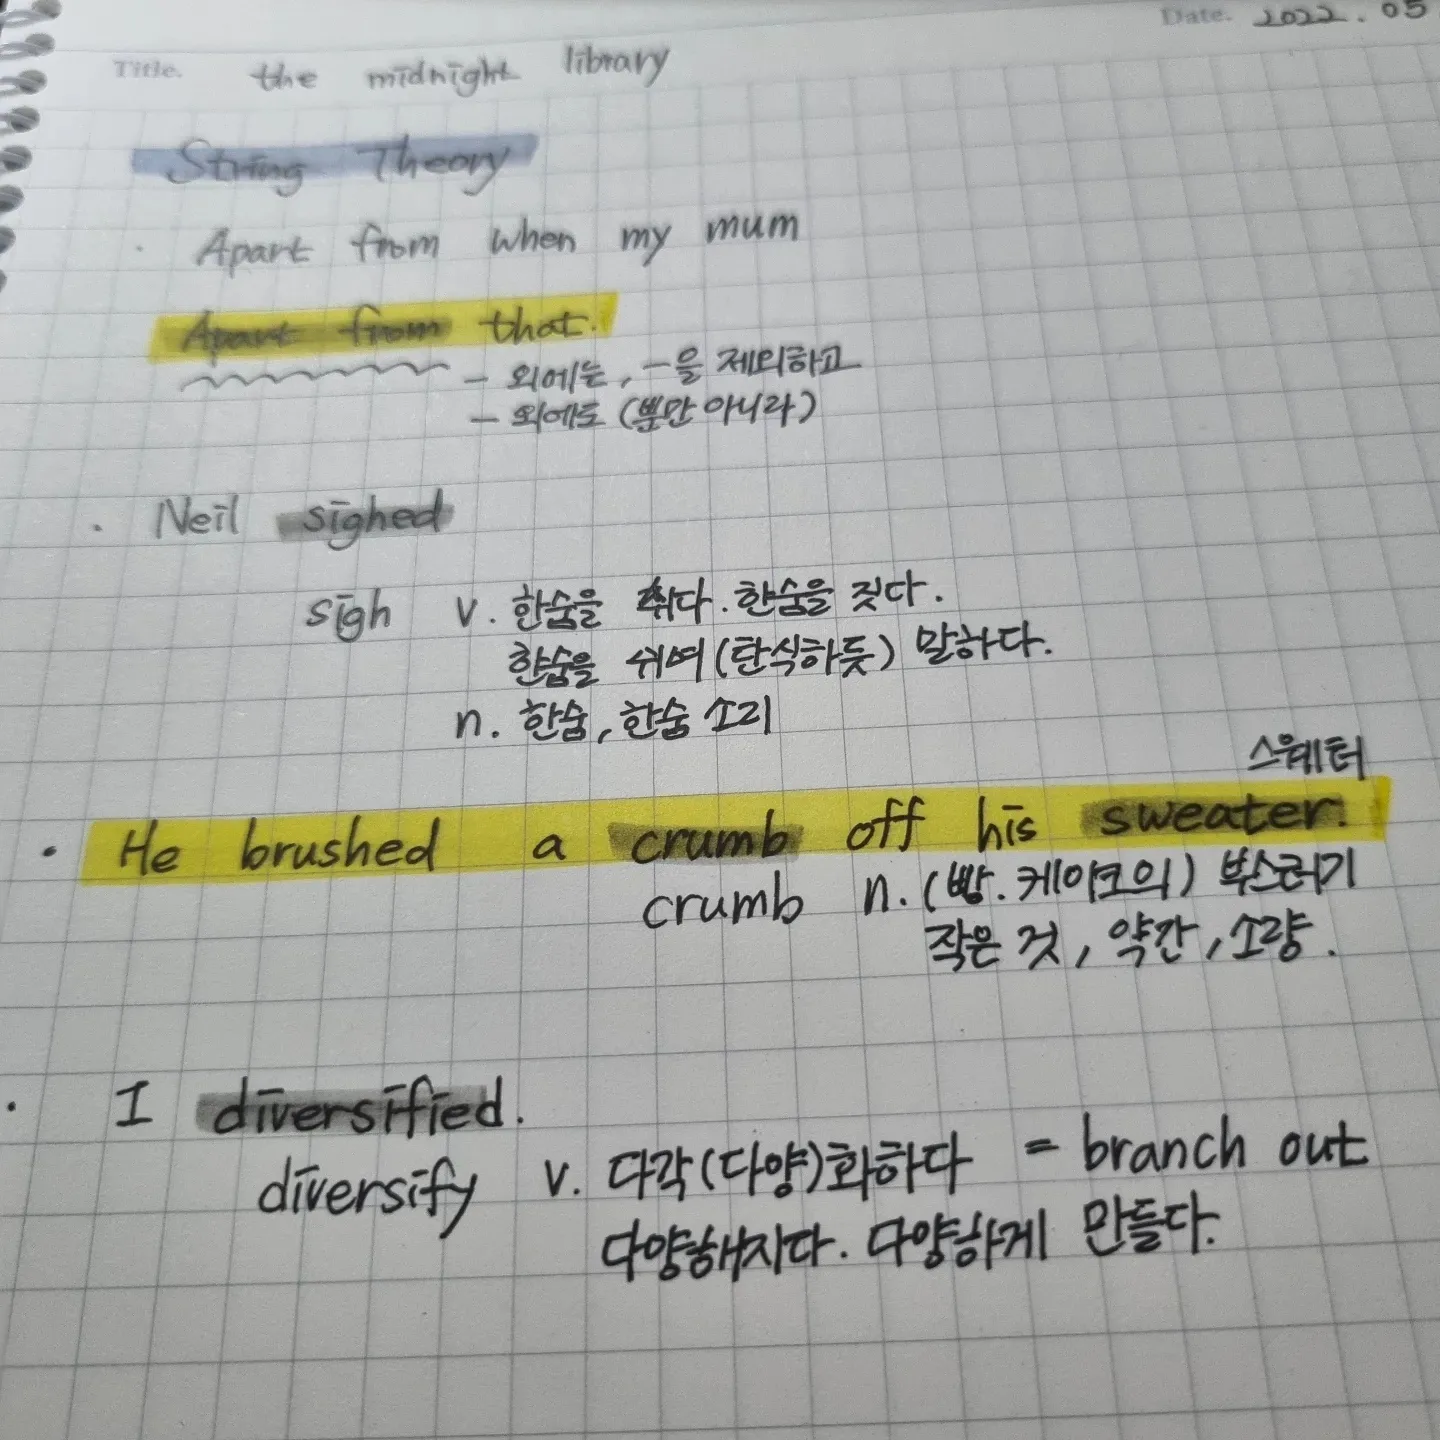 Date. 2022.05
Title. the midnight library
String Theory
· Apart from when my mum
Apart from that.
- 외에는, -을 제외하고
- 외에도 (뿐만 아니라)
· Neil sighed
sigh v. 한숨을 쉬다. 한숨을 짓다.
한숨을 쉬며(탄식하듯) 말하다.
n. 한숨, 한숨 소리
스웨터
· He brushed a crumb off his sweater.
crumb n. (빵.케이크의) 부스러기
작은 것, 약간, 소량.
· I diversified.
diversify v. 다각(다양)화하다 = branch out
다양해지다. 다양하게 만들다.